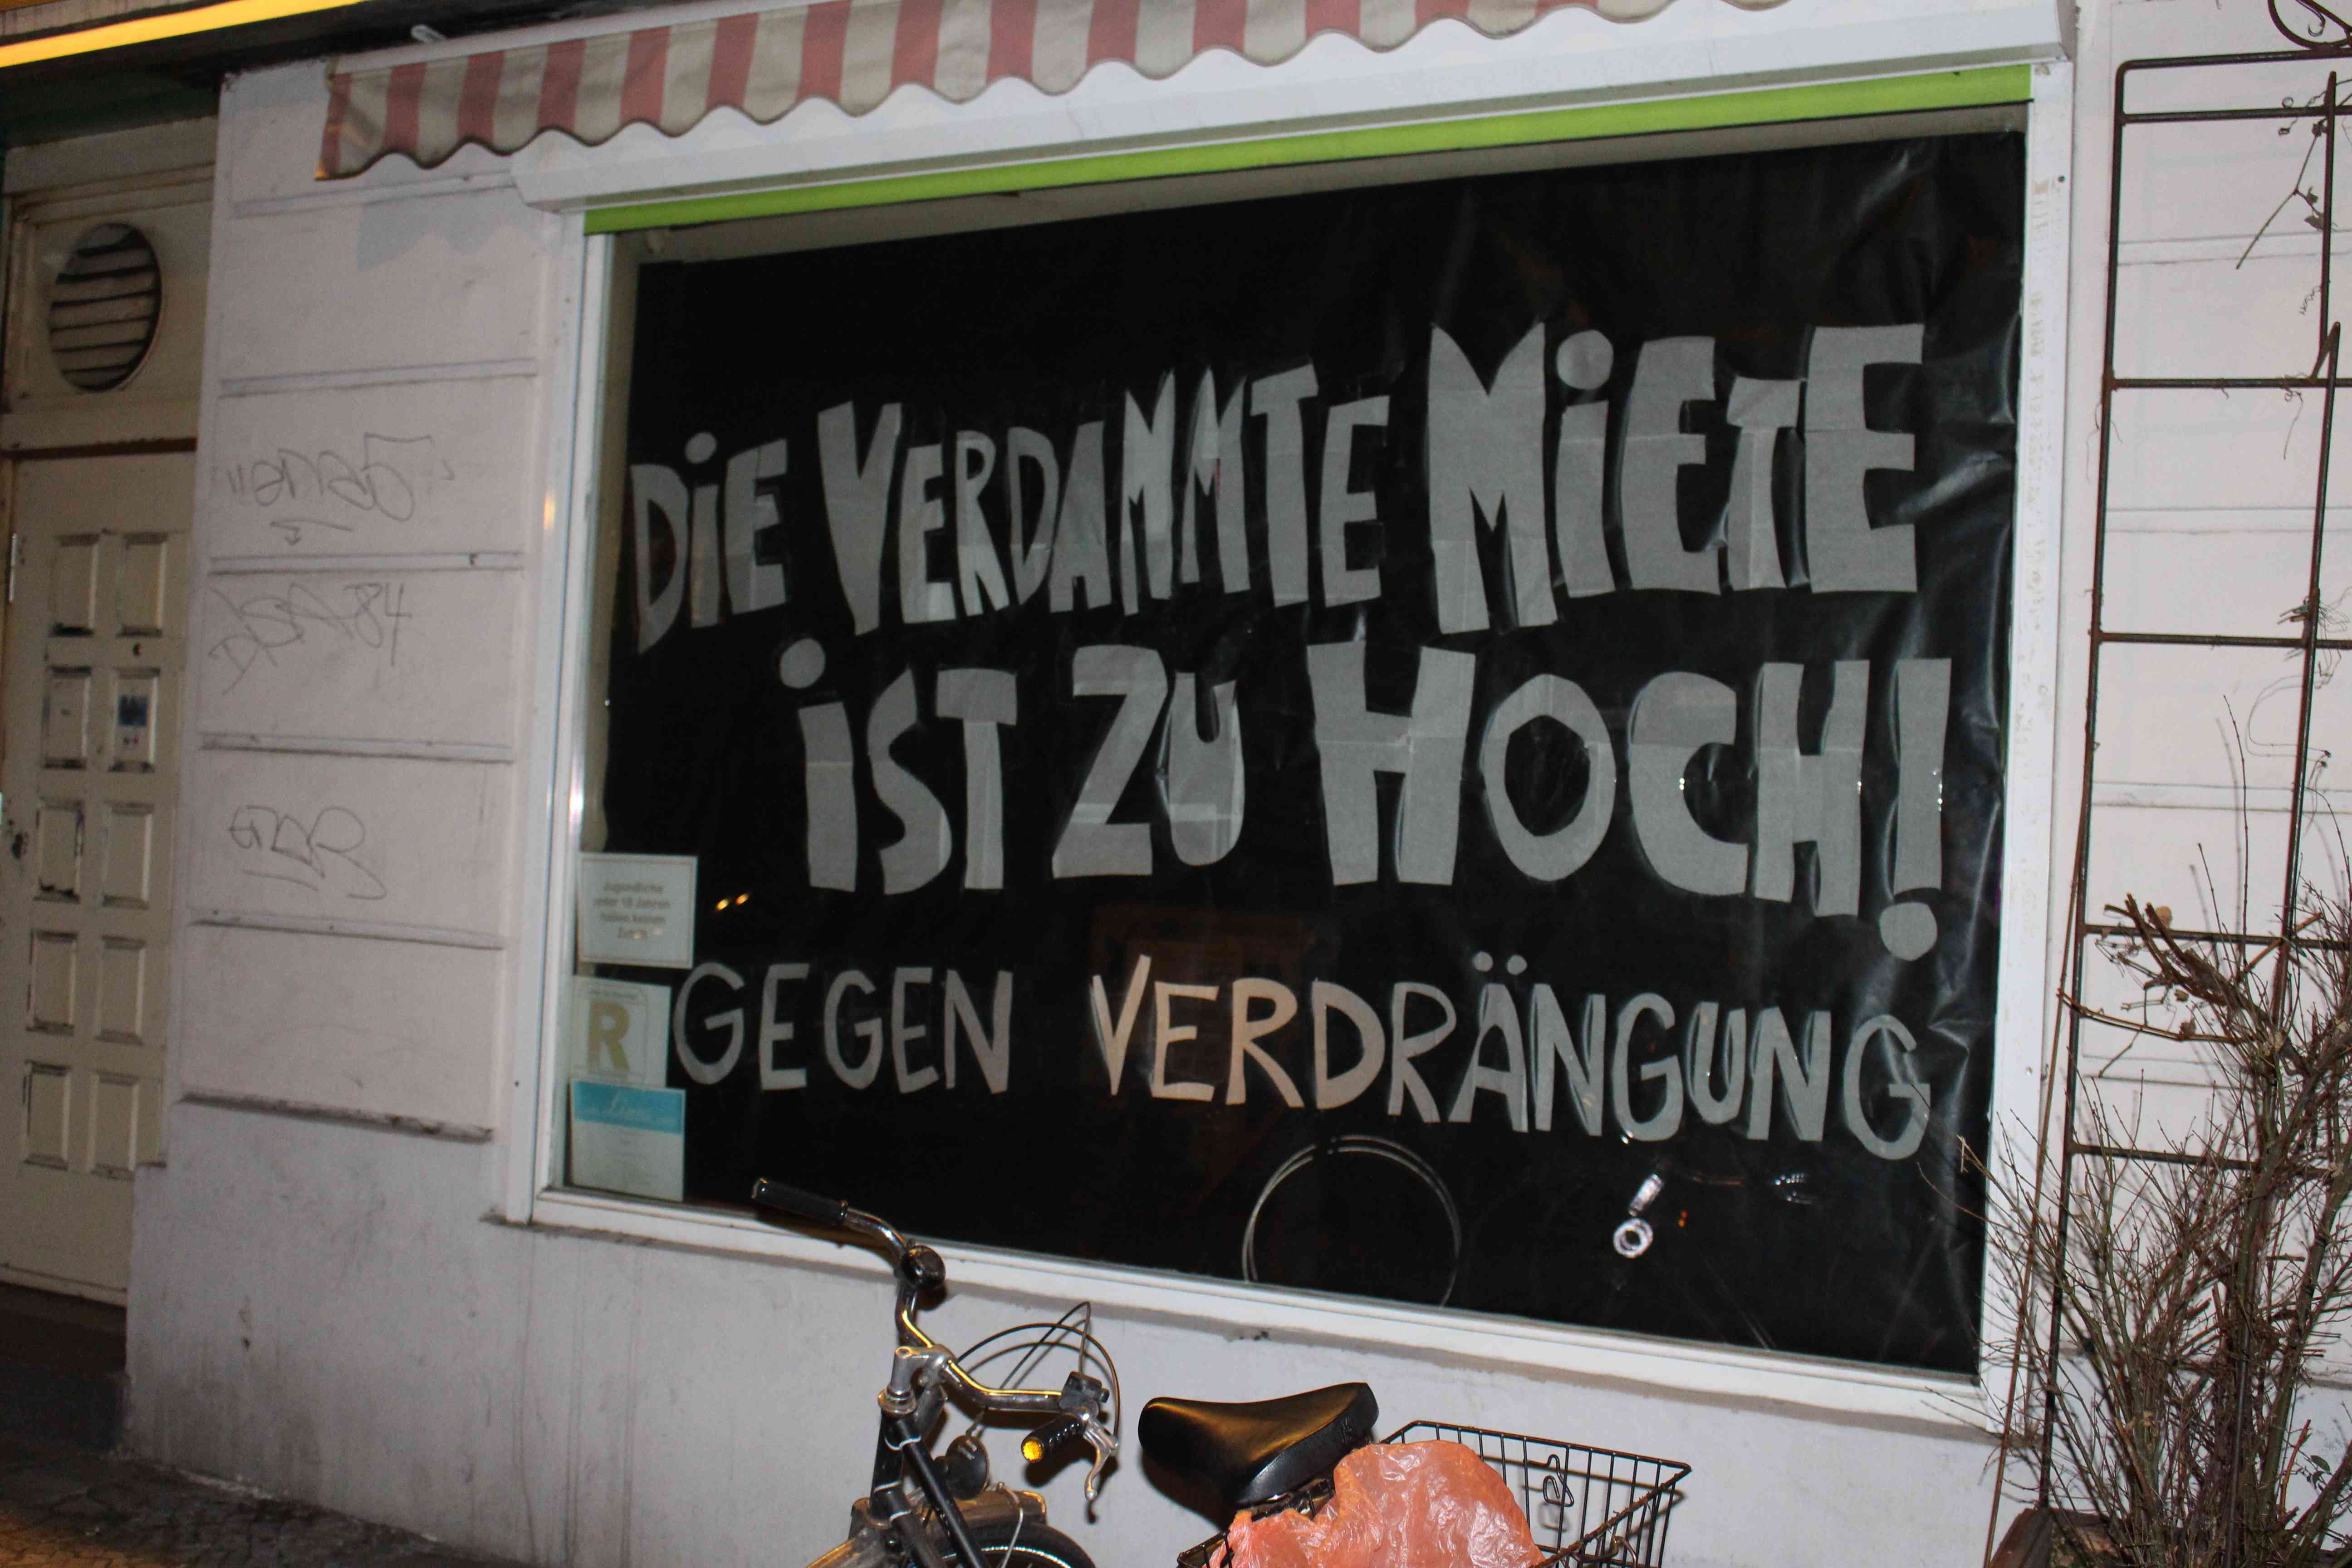 DiE VERDAMMTE MiETE
iST ZU HOCH!
GEGEN VERDRÄNGUNG
Jugendliche
unter 18 Jahren
haben keinen
Zutritt
R